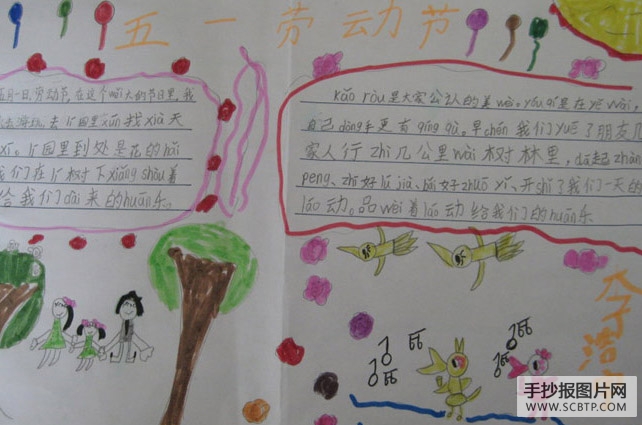 五一劳动节
五月一日,劳动节,在这个盛大的节日里,我
去公园里xún找xià天
xī。公园里到处是花的hǎi
们在公树下xiǎng shòu着
给我们dài来的huān乐。
kǎo ròu是大家公认的美wèi。yóu qí是在yě wài,
自己dòng手更有qíng qù。早chén我们yuē了朋友
家人行zhí几公里wài树林里,dā起zhàng
peng、zhī好lú jià、bǎi好zhuō yǐ、开shǐ了我们一天的
láo动。品wèi着láo动给我们的huān乐
手抄报图片网
WWW.SCBTP.COM